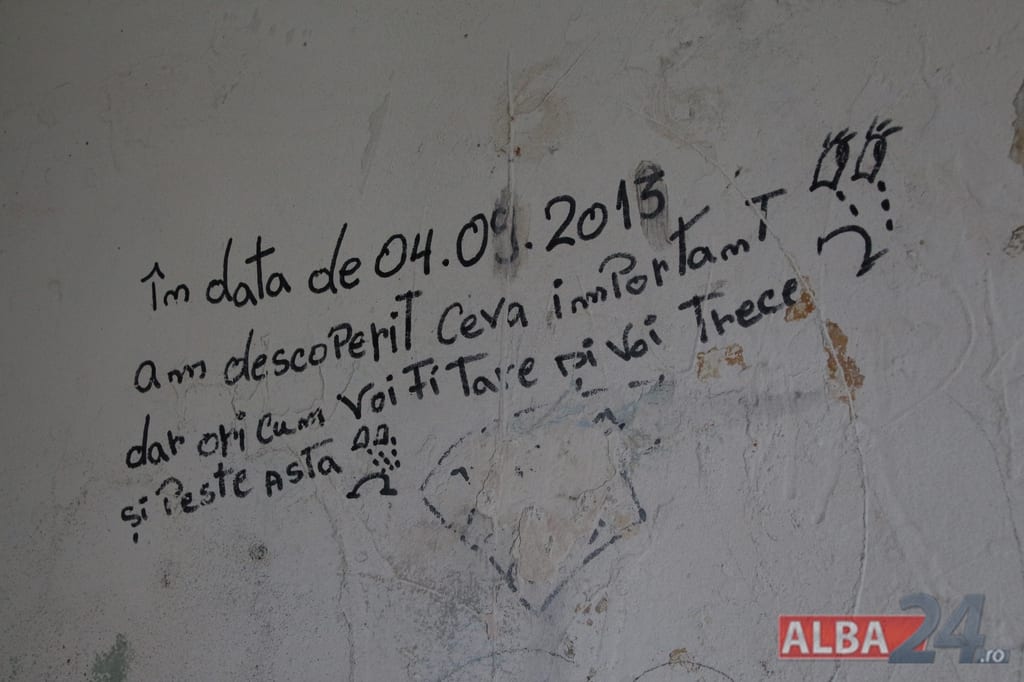 în data de 04.09.2013
am descoperit ceva important
dar ori cum voi fi tare și voi trece
și peste asta
ALBA24.ro